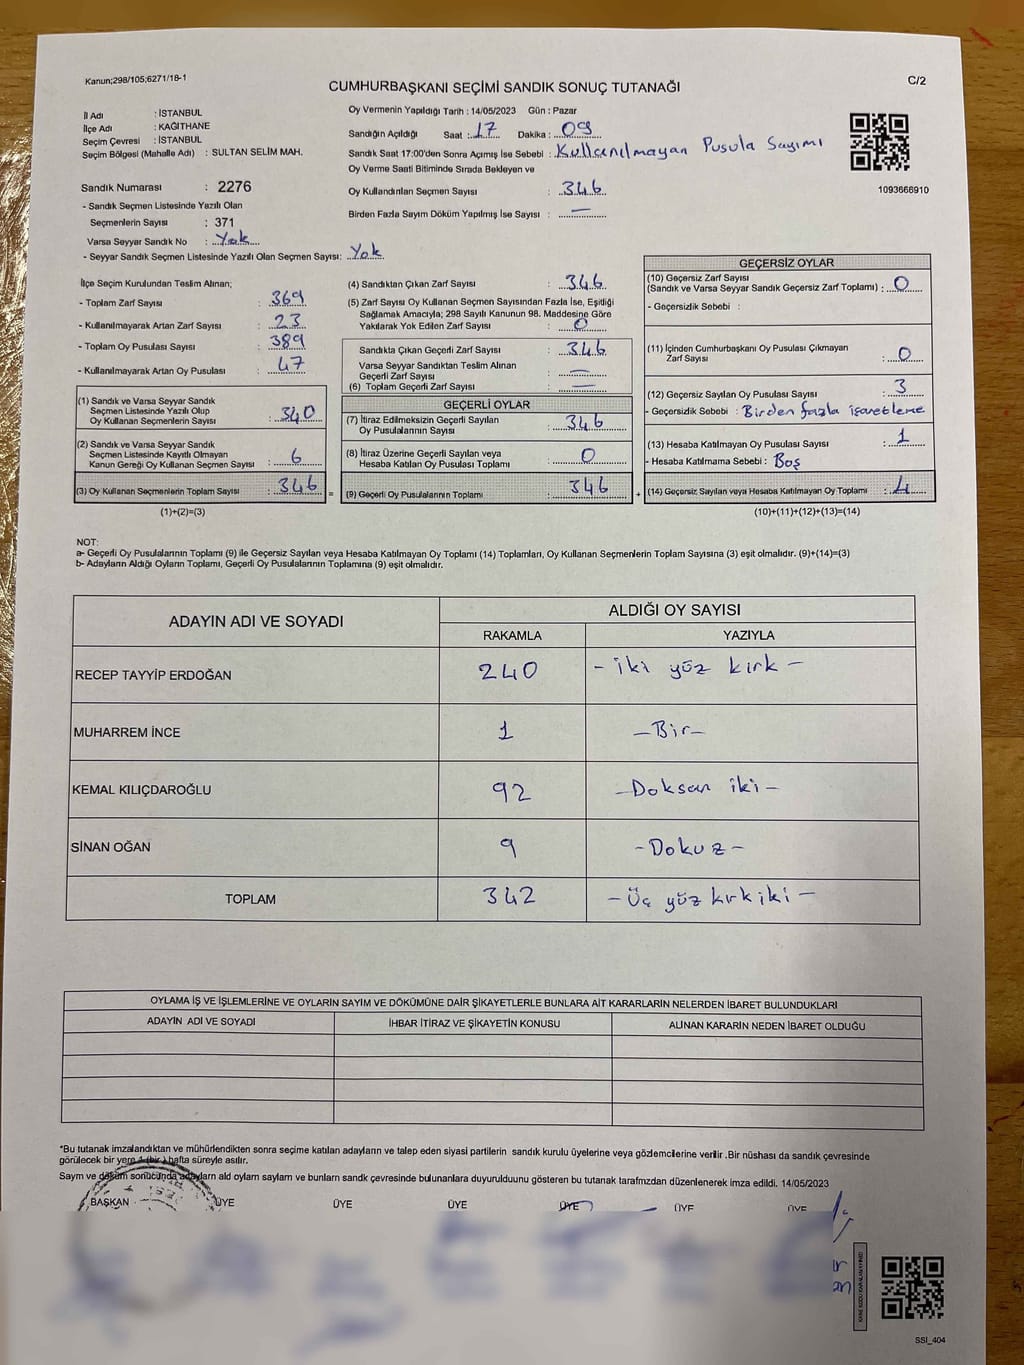 Kanun;298/105;6271/18-1
CUMHURBAŞKANI SEÇİMİ SANDIK SONUÇ TUTANAĞI
C/2
İl Adı : İSTANBUL
İlçe Adı : KAĞITHANE
Seçim Çevresi : İSTANBUL
Seçim Bölgesi (Mahalle Adı) : SULTAN SELİM MAH.
Sandık Numarası : 2276
- Sandık Seçmen Listesinde Yazılı Olan
Seçmenlerin Sayısı : 371
Varsa Seyyar Sandık No : Yok
- Seyyar Sandık Seçmen Listesinde Yazılı Olan Seçmen Sayısı: Yok
Oy Vermenin Yapıldığı Tarih : 14/05/2023 Gün : Pazar
Sandığın Açıldığı Saat : 17 Dakika : 09
Sandık Saat 17:00'den Sonra Açımış İse Sebebi : Kullanılmayan Pusula Sayımı
Oy Verme Saati Bitiminde Sırada Bekleyen ve
Oy Kullandırılan Seçmen Sayısı : 346
Birden Fazla Sayım Döküm Yapılmış İse Sayısı : —
1093666910
İlçe Seçim Kurulundan Teslim Alınan;
- Toplam Zarf Sayısı : 369
- Kullanılmayarak Artan Zarf Sayısı : 23
- Toplam Oy Pusulası Sayısı : 389
- Kullanılmayarak Artan Oy Pusulası : 47
(1) Sandık ve Varsa Seyyar Sandık
Seçmen Listesinde Yazılı Olup
Oy Kullanan Seçmenlerin Sayısı : 340
(2) Sandık ve Varsa Seyyar Sandık
Seçmen Listesinde Kayıtlı Olmayan
Kanun Gereği Oy Kullanan Seçmen Sayısı : 6
(3) Oy Kullanan Seçmenlerin Toplam Sayısı : 346
(1)+(2)=(3)
(4) Sandıktan Çıkan Zarf Sayısı : 346
(5) Zarf Sayısı Oy Kullanan Seçmen Sayısından Fazla İse, Eşitliği
Sağlamak Amacıyla; 298 Sayılı Kanunun 98. Maddesine Göre
Yakılarak Yok Edilen Zarf Sayısı : 0
Sandıkta Çıkan Geçerli Zarf Sayısı : 346
Varsa Seyyar Sandıktan Teslim Alınan
Geçerli Zarf Sayısı : —
(6) Toplam Geçerli Zarf Sayısı : —
GEÇERLİ OYLAR
(7) İtiraz Edilmeksizin Geçerli Sayılan
Oy Pusulalarının Sayısı : 346
(8) İtiraz Üzerine Geçerli Sayılan veya
Hesaba Katılan Oy Pusulası Toplamı : 0
= (9) Geçerli Oy Pusulalarının Toplamı : 346
GEÇERSİZ OYLAR
(10) Geçersiz Zarf Sayısı
(Sandık ve Varsa Seyyar Sandık Geçersiz Zarf Toplamı) : 0
- Geçersizlik Sebebi :
(11) İçinden Cumhurbaşkanı Oy Pusulası Çıkmayan
Zarf Sayısı : 0
(12) Geçersiz Sayılan Oy Pusulası Sayısı : 3
- Geçersizlik Sebebi : Birden fazla işaretleme
(13) Hesaba Katılmayan Oy Pusulası Sayısı : 1
- Hesaba Katılmama Sebebi : Boş
+ (14) Geçersiz Sayılan veya Hesaba Katılmayan Oy Toplamı : 4
(10)+(11)+(12)+(13)=(14)
NOT:
a- Geçerli Oy Pusulalarının Toplamı (9) ile Geçersiz Sayılan veya Hesaba Katılmayan Oy Toplamı (14) Toplamları, Oy Kullanan Seçmenlerin Toplam Sayısına (3) eşit olmalıdır. (9)+(14)=(3)
b- Adayların Aldığı Oyların Toplamı, Geçerli Oy Pusulalarının Toplamına (9) eşit olmalıdır.
ADAYIN ADI VE SOYADI ALDIĞI OY SAYISI
RAKAMLA YAZIYLA
RECEP TAYYİP ERDOĞAN 240 - iki yüz kırk -
MUHARREM İNCE 1 - Bir -
KEMAL KILIÇDAROĞLU 92 - Doksan iki -
SİNAN OĞAN 9 - Dokuz -
TOPLAM 342 - Üç yüz kırk iki -
OYLAMA İŞ VE İŞLEMLERİNE VE OYLARIN SAYIM VE DÖKÜMÜNE DAİR ŞİKAYETLERLE BUNLARA AİT KARARLARIN NELERDEN İBARET BULUNDUKLARI
ADAYIN ADI VE SOYADI İHBAR İTİRAZ VE ŞİKAYETİN KONUSU ALINAN KARARIN NEDEN İBARET OLDUĞU
*Bu tutanak imzalandıktan ve mühürlendikten sonra seçime katılan adayların ve talep eden siyasi partilerin sandık kurulu üyelerine veya gözlemcilerine verilir .Bir nüshası da sandık çevresinde
görülecek bir yere 1 (bir ) hafta süreyle asılır.
Saym ve döküm sonucunda adaylarn ald oylam saylam ve bunlarn sandk çevresinde bulunanlara duyurulduunu gösteren bu tutanak tarafmzdan düzenlenerek imza edildi. 14/05/2023
BAŞKAN ÜYE ÜYE ÜYE ÜYE ÜYE ÜYE
SSI_404